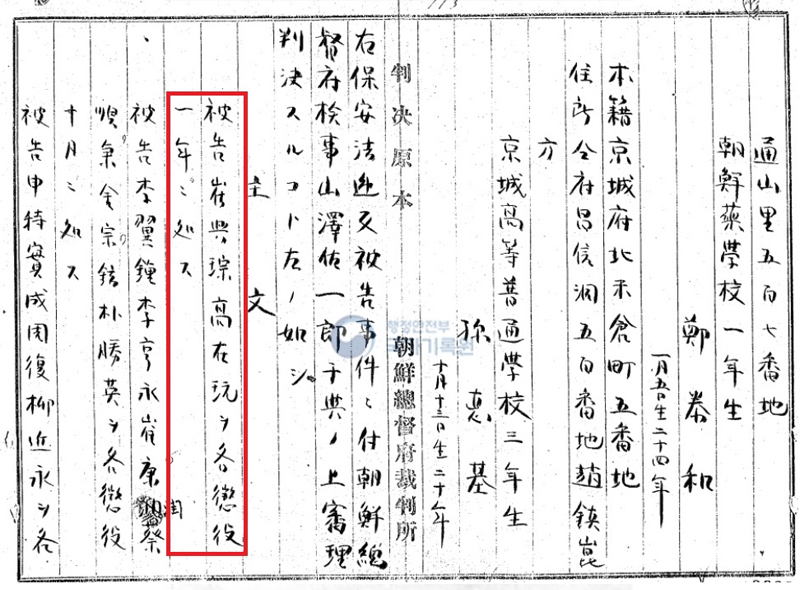 通山里五百七番地
朝鮮藥學校一年生
鄭泰和
一月五日生二十四年
本籍京城府北米倉町五番地
住所仝府昌信洞五百番地趙鎮崑
方
京城高等普通學校三年生
孫悳基
十月十三日生二十年
判決原本 朝鮮總督府裁判所
右保安法違反被告事件ニ付朝鮮總
督府検事山澤佐一郎干與ノ上審理
判決スルコト左ノ如シ。
主文
被告崔興琮高在玩ヲ各懲役
一年ニ処ス
被告李翼鍾李亨永崔康潤蔡
順秉金宗鉉朴勝英ヲ各懲役
十月ニ処ス
被告申特實成周復柳近永ヲ各
행정안전부
국가기록원